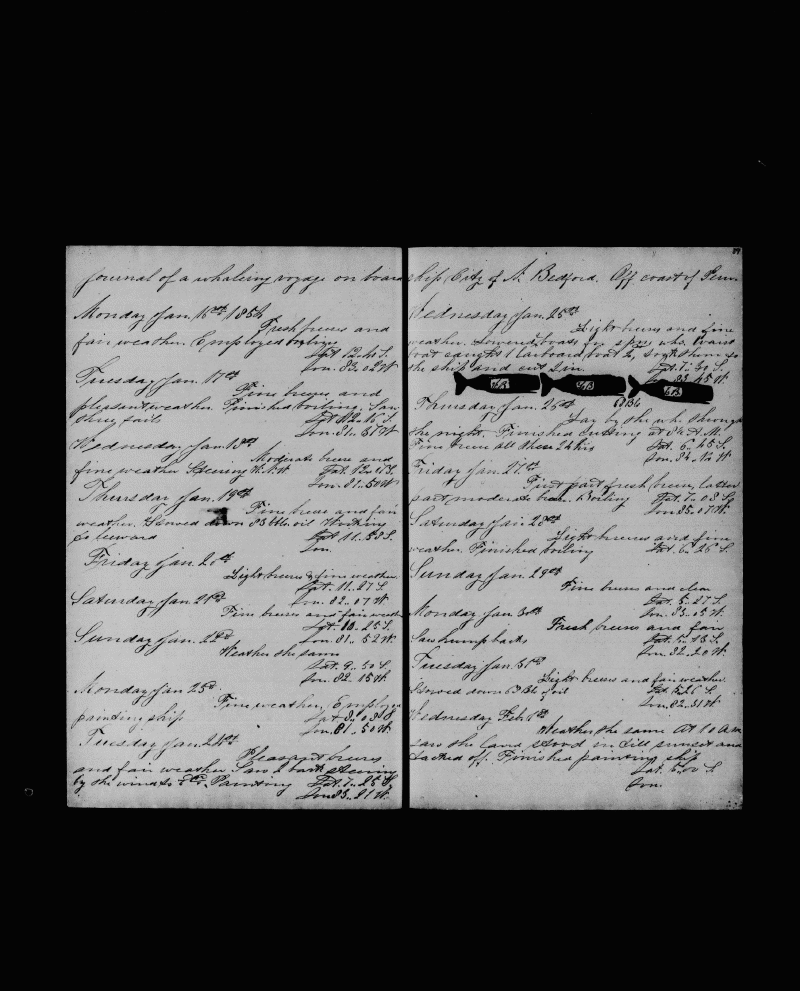 Journal of a whaleing voyage on board
Monday Jan. 16th 1854
Fresh breeze and
fair weather. Employed
Lat 12..40 S.
Lon. 83..02 W.
Tuesday Jan. 17th
Fine breeze and
pleasant weather. Finished boiling. Saw
Lon. 81..51 W.
Wednesday Jan. 18th
Moderate breeze and
fine weather Steering W.N.W
Lon. 81..50 W
Thursday Jan. 19th
Fine breeze and fair
weather. Stowed down 83 bbls oil Working
to leeward Lat 11..58 S.
Lon.
Friday Jan. 20th
Light breeze & fine weather
Lat. 11..27 S.
Lon. 82..07 W.
Saturday Jan. 21st
Fine breeze and fair weather
Lat. 10..25 S.
Lon. 81..52 W.
Sunday Jan. 22d
Weather the same
Lat. 9..50 S.
Lon. 82..15 W.
Monday Jan. 23d
Fine weather, Employed
painting ship Lat 8..08 S
Lon. 81..50 W.
Tuesday Jan. 24th
Pleasant breeze
and fair weather Saw 2 bark steering
by the wind to Painting Lat. 7..28 S.
Lon 83..21 W.
89
ship City of N. Bedford. Off coast of Peru
Wednesday Jan. 25th
Light breeze and fine
weather. Lowered boats for sperm whs. Waist
boat caught 1 Larboard boat 2, took them to
the ship and cut 2 in. Lat. 7..30 S.
83..45 W.
Thursday Jan. 26th
Lay by the wh. through
the night. Finished cutting at 8½ A.M.
Fine breeze all these 24 hrs Lat. 6..45 S.
Lon. 84..12 W
Friday Jan. 27th
First part fresh breeze, latter
part moderate Boiling Lat. 7..08 S.
Lon 85..07 W.
Saturday Jan. 28th
Light breeze and fine
weather. Finished boiling Lat. 6..26 S.
Sunday Jan. 29th
Fine breeze and clear
Lat. 5..27 S.
Lon. 83..05 W.
Monday Jan. 30th
Fresh breeze and fair
Saw humpbacks Lat. 5..13 S.
Lon. 82..20 W.
Tuesday Jan. 31st
Light breeze and fair weather.
Stowed down 63 bbls of oil Lat. 5..26 S.
Lon. 82..31 W.
Wednesday Feb. 1st
Weather the same At 10 A.M.
saw the land stood in till sunset and
tacked off. Finished painting ship
Lat. 5..00 S.
Lon.